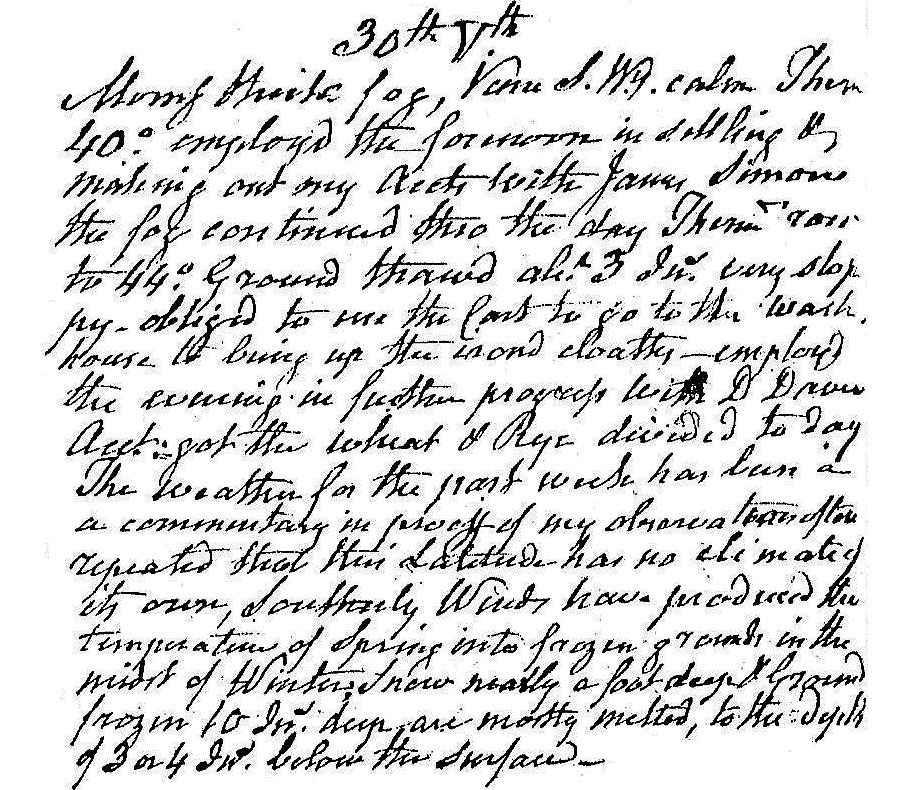 30th Vth
Morng thick fog, Vane S. Wd. calm Ther
40° employd the forenoon in settling &
making out my Accts with James Simons
the fog continued thro the day Thermr rose
to 44° Ground thawd abt 3 Ins. very slop
py - obliged to use the Cart to go to the wash
house to bring up the irond cloaths - employd
the evening in further progress with D Daves
Acct: got the wheat & Rye divided to day
The weather for the past week has been a
a commentary in proof of my observations often
repeated that this Latitude has no climate of
its own, Southerly Winds have produced the
temperature of Spring into frozen grounds in the
midst of Winter, Snow nearly a foot deep & Ground
frozen 10 Ins. deep, are mostly melted, to the Depth
of 3 or 4 Ins. below the surface -